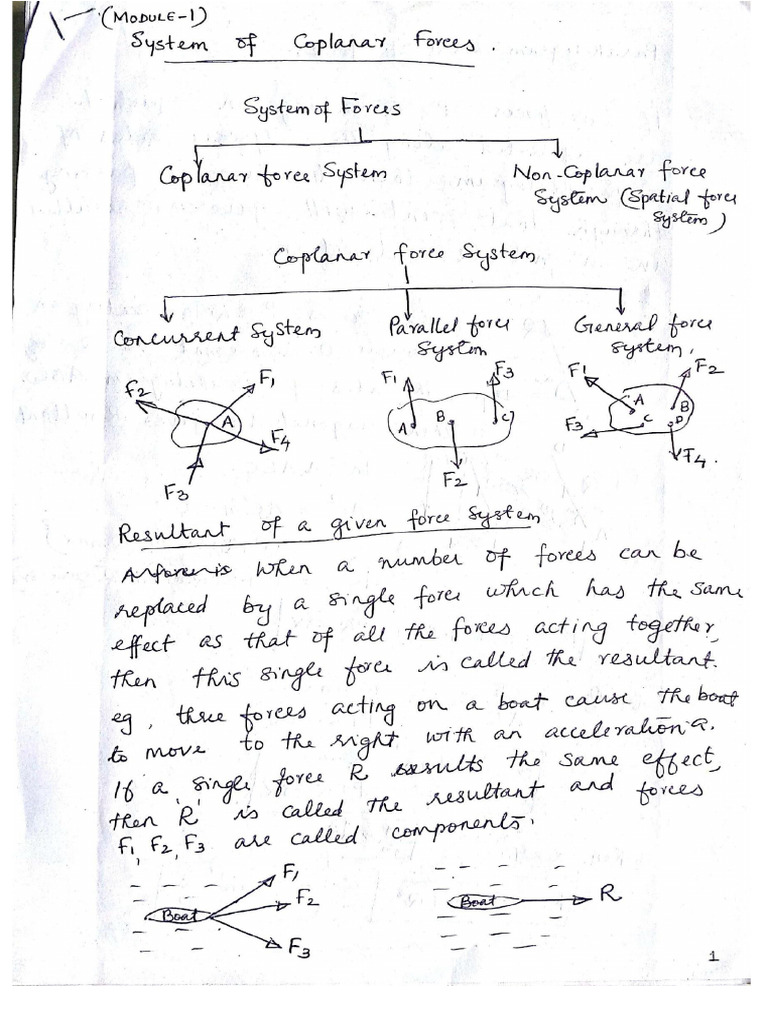 (MODULE-1)
System of Coplanar Forces.
System of Forces
Coplanar force System
Non-Coplanar force
System (Spatial force
System)
Coplanar force System
Concurrent System
Parallel force
System
General force
System.
F2
F1
A
F4
F3
F1
F3
A
B
C
F2
F1
F2
A
B
C
D
F3
F4.
Resultant of a given force System
When a number of forces can be
replaced by a single force which has the same
effect as that of all the forces acting together,
then this single force is called the resultant.
eg, three forces acting on a boat cause the boat
to move to the right with an acceleration a.
If a single force R results the same effect,
then 'R' is called the resultant and forces
F1, F2, F3 are called components.
F1
Boat
F2
F3
Boat
R
1